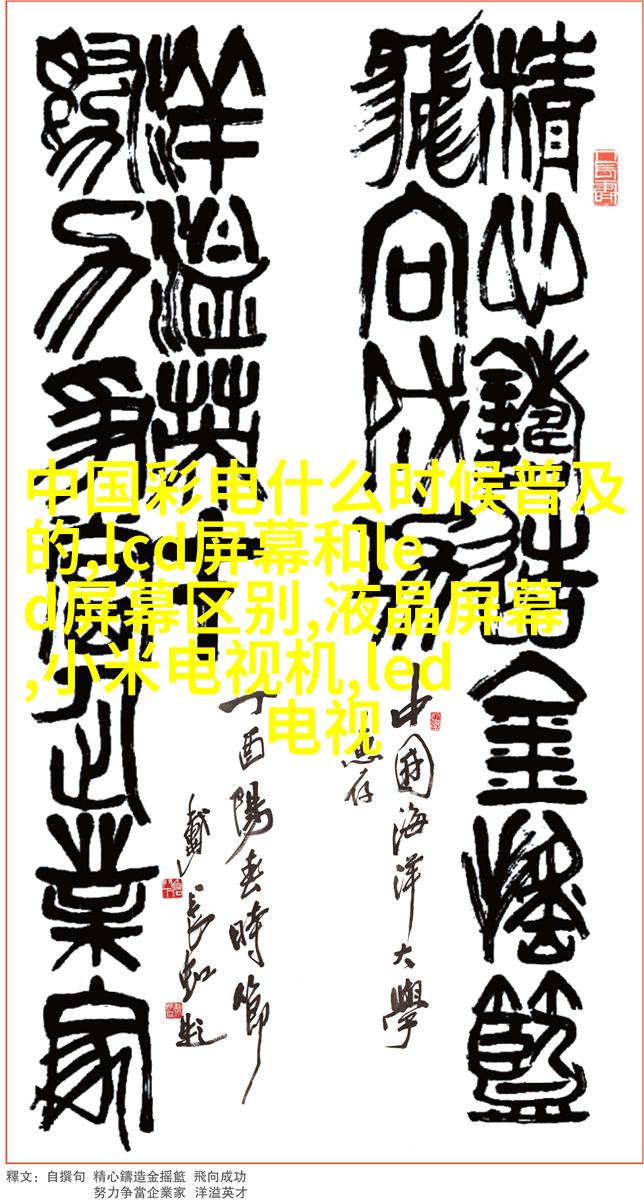 精心鑄造金摇籃
飛向成功
中國海洋大學
惠存
洋溢英才
丁酉陽春時節
戴長虹題
努力争當企業家
中国彩电什么时候普及
的,lcd屏幕和le
d屏幕区别,液晶屏幕
,小米电视机,led
电视
釋文：自撰句 精心鑄造金摇籃 飛向成功
努力争當企業家 洋溢英才